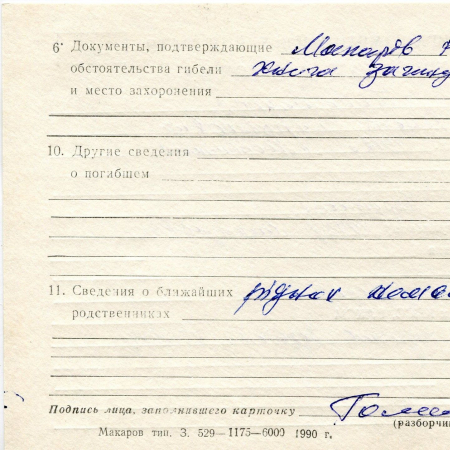 6· Документы, подтверждающие
обстоятельства гибели Книга
и место захоронения
10. Другие сведения
о погибшем
11. Сведения о ближайших рідних нема
родственниках
Подпись лица, заполнившего карточку
(разборчи
Макаров тип. З. 529—1175—6000 1990 г.